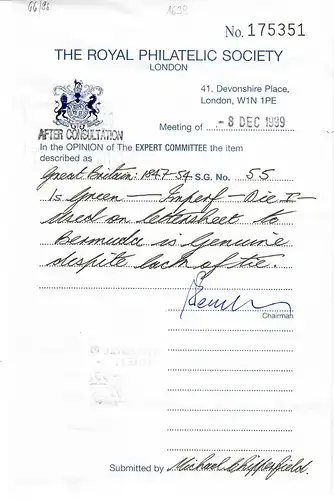 66/96 1698
No. 175351
THE ROYAL PHILATELIC SOCIETY
LONDON
41, Devonshire Place,
London, W1N 1PE
AFTER CONSULTATION
Meeting of - 8 DEC 1999
In the OPINION of The EXPERT COMMITTEE the item
described as
Great Britain: 1847-54 S.G. No. 55
1s Green - Imperf - Die I -
Used on lettersheet to
Bermuda is Genuine
despite lack of tie.
Chairman
Submitted by Michael Chipperfield.